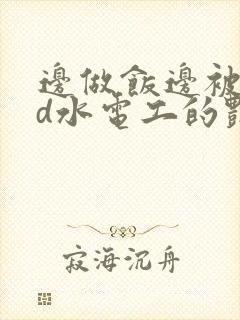 邊做飯邊被
d水電工的
寂海沉舟